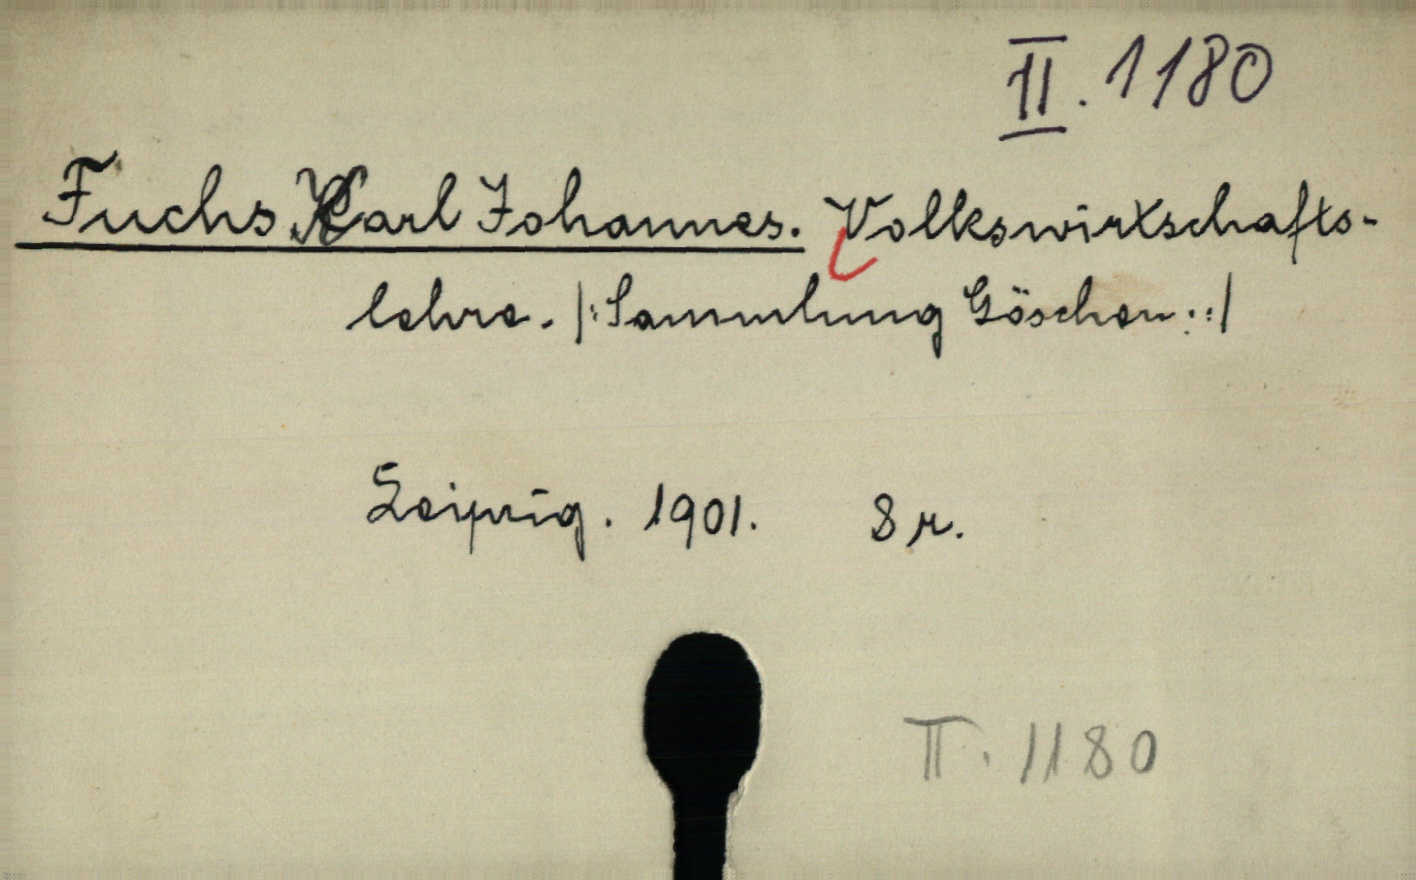 II. 1180
Fuchs Karl Johannes. Volkswirtschafts-
lehre. |: Sammlung Göschen. :|
Leipzig. 1901. 8 r.
II. 1180